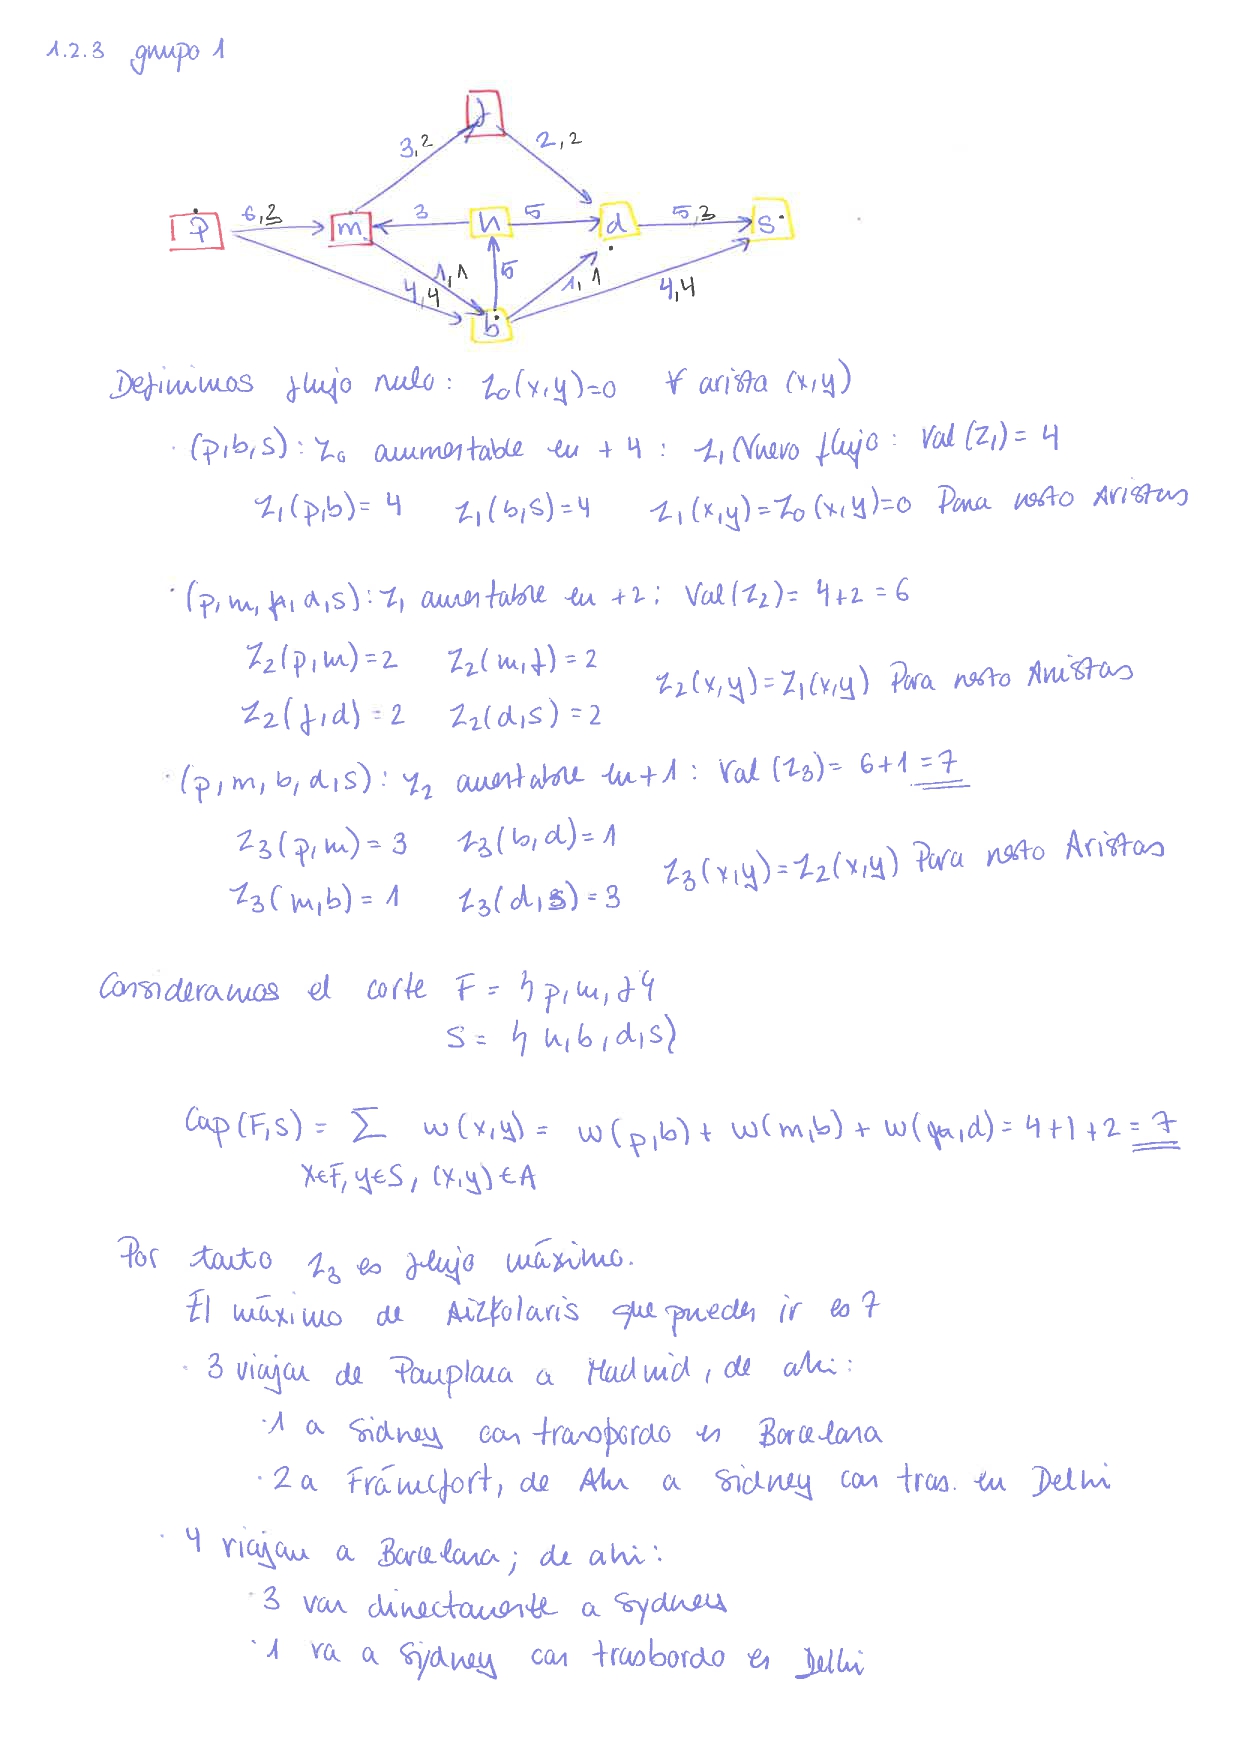 1.2.3 grupo 1
f
3,2
2,2
p
6,3
m
3
h
5
d
5,3
s
1,1
5
1,1
4,4
4,4
b
Definimos flujo nulo: z₀(x,y)=0 ∀ arista (x,y)
· (p,b,s): z₀ aumentable en +4 : z₁ Nuevo flujo: Val(z₁) = 4
z₁(p,b)= 4 z₁(b,s)=4 z₁(x,y)=z₀(x,y)=0 Para resto Aristas
· (p,m,f,d,s): z₁ aumentable en +2: Val(z₂)= 4+2 = 6
z₂(p,m)=2 z₂(m,f)=2
z₂(x,y)=z₁(x,y) Para resto Aristas
z₂(f,d)=2 z₂(d,s)=2
· (p,m,b,d,s): z₂ auentable en +1: Val(z₃)= 6+1 =7
z₃(p,m)=3 z₃(b,d)=1
z₃(x,y)=z₂(x,y) Para resto Aristas
z₃(m,b)=1 z₃(d,s)=3
Consideramos el corte F = {p,m,f}
S = {h,b,d,s}
Cap(F,S) = Σ w(x,y) = w(p,b)+ w(m,b)+ w( ,d)= 4+1+2 = 7
x∈F, y∈S, (x,y)∈A
Por tanto z₃ es flujo máximo.
El máximo de Aizkolaris que pueden ir es 7
· 3 viajan de Pamplona a Madrid, de ahi:
· 1 a Sidney con transbordo en Barcelona
· 2 a Fráncfort, de Ahi a Sidney con tras. en Delhi
· 4 viajan a Barcelona; de ahi:
· 3 van directamente a Sydney
· 1 va a Sydney con trasbordo en Delhi